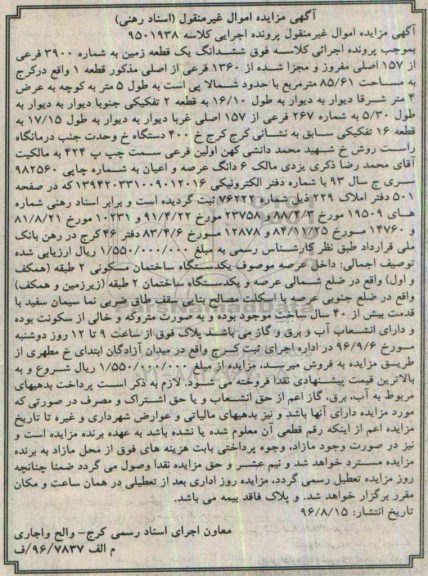 آگهی مزایده اموال غیرمنقول (اسناد رهنی)
آگهی مزایده اموال غیرمنقول پرونده اجرایی کلاسه ۹۵۰۱۹۳۸
بموجب پرونده اجرائی کلاسه فوق ششدانگ یک قطعه زمین به شماره ۳۹۰۰ فرعی
از ۱۵۷ اصلی مفروز و مجزا شده از ۱۳۶۰ فرعی از اصلی مذکور قطعه ۱ واقع درکرج
به مساحت ۸۵/۶۱ مترمربع با حدود شمالا پی است به طول ۵ متر به کوچه به عرض
۴ متر شرقا دیوار به دیوار به طول ۱۶/۱۰ به قطعه ۲ تفکیکی جنوبا دیوار به دیوار به
طول ۵/۳۰ به شماره ۲۶۷ فرعی از ۱۵۷ اصلی غربا دیوار به دیوار به طول ۱۷/۱۵ به
قطعه ۱۶ تفکیکی سابق به نشانی کرج کرج خ ۴۰۰ دستگاه خ وحدت جنب درمانگاه
راست روش خ شهید محمد دانشی کهن اولین فرعی سمت چپ پ ۴۲۴ به مالکیت
آقای محمد رضا ذکری یزدی مالک ۶ دانگ عرصه و اعیان به شماره چاپی ۹۸۲۵۶۰
سری ج سال ۹۳ با شماره دفتر الکترونیکی ۱۳۹۴۲۰۳۳۱۰۰۹۰۱۲۰۱۶ که در صفحه
۵۰۱ دفتر املاک ۲۲۹ ذیل شماره ۷۶۲۲۲ ثبت گردیده است و برابر اسناد رهنی شماره
های ۱۹۵۰۹ مورخ ۸۸/۴/۲ و ۲۳۷۵۸ مورخ ۹۱/۴/۲۲ و ۱۰۲۳۱ مورخ ۸۱/۸/۲۱
و ۱۴۷۶۰ مورخ ۸۴/۱۱/۲۵ و ۱۲۸۷۸ مورخ ۸۳/۴/۶ دفتر ۴۶ کرج در رهن بانک
ملی قرارداد طبق نظر کارشناس رسمی به مبلغ ۱/۵۵۰/۰۰۰/۰۰۰ ریال ارزیابی شده
توصیف اجمالی: داخل عرصه موصوف یکدستگاه ساختمان مسکونی ۲ طبقه (همکف
و اول) واقع در ضلع شمالی عرصه و یکدستگاه ساختمان ۲ طبقه (زیرزمین و همکف)
واقع در ضلع جنوبی عرصه با اسکلت مصالح بنایی سقف طاق ضربی نما سیمان سفید با
قدمت بیش از ۴۰ سال ساخت موجود بوده و به صورت متروکه و خالی از سکونت بوده
و دارای انشعاب آب و برق و گاز می باشد پلاک فوق از ساعت ۹ تا ۱۲ روز دوشنبه
مورخ ۹۶/۹/۶ در اداره اجرای ثبت کرج واقع در میدان آزادگان ابتدای خ مطهری از
طریق مزایده به فروش میرسد. مزایده از مبلغ ۱/۵۵۰/۰۰۰/۰۰۰ ریال شروع و به
بالاترین قیمت پیشنهادی نقدا فروخته می شود. لازم به ذکر است پرداخت بدهیهای
مربوط به آب، برق، گاز اعم از حق انشعاب و یا حق اشتراک و مصرف در صورتی که
مورد مزایده دارای آنها باشد و نیز بدهیهای مالیاتی و عوارض شهرداری و غیره تا تاریخ
مزایده اعم از اینکه رقم قطعی آن معلوم شده یا نشده باشد به عهده برنده مزایده است و
نیز در صورت وجود مازاد، وجوه پرداختی بابت هزینه های فوق از محل مازاد به برنده
مزایده مسترد خواهد شد و نیم عشر و حق مزایده نقدا وصول می گردد ضمنا چنانچه
روز مزایده تعطیل رسمی گردد، مزایده روز اداری بعد از تعطیلی در همان ساعت و مکان
مقرر برگزار خواهد شد. و پلاک فاقد بیمه می باشد.
تاریخ انتشار: ۹۶/۸/۱۵
معاون اجرای اسناد رسمی کرج- والح واجاری
م الف ۹۶/۷۸۳۷/ف